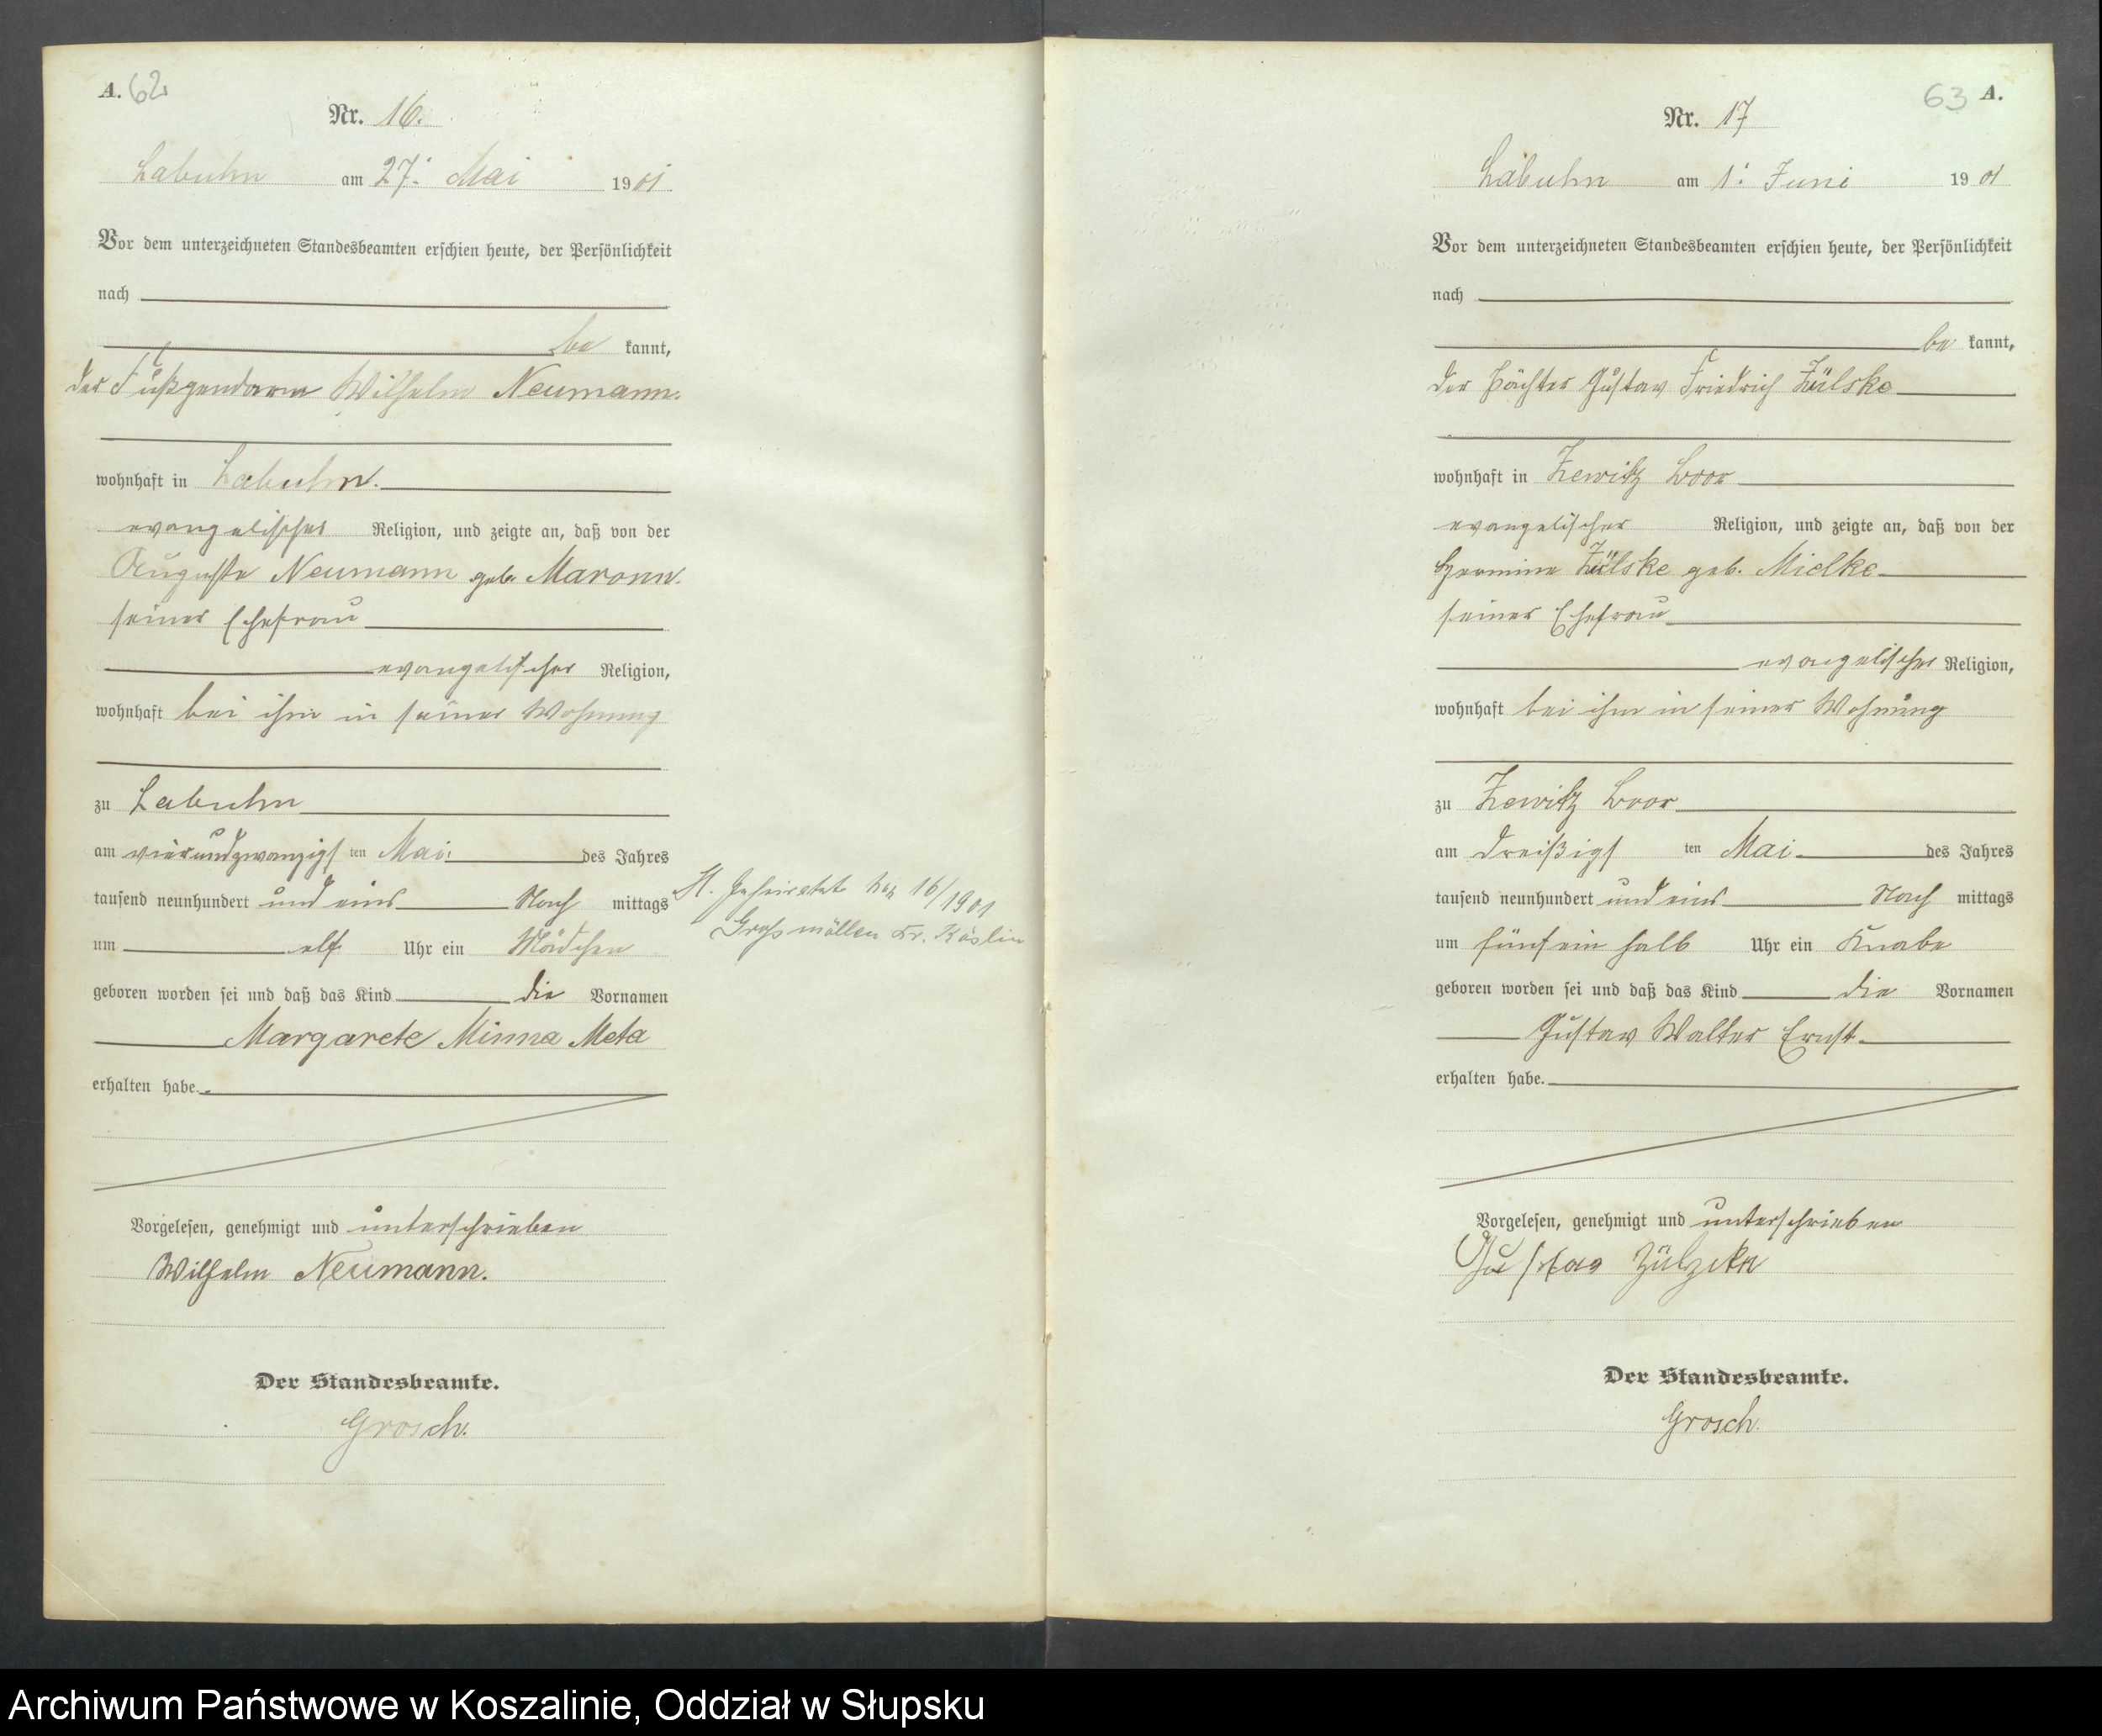 A. 62
Nr. 16.
Labuhn am 27. Mai 1901
Vor dem unterzeichneten Standesbeamten erschien heute, der Persönlichkeit
nach
be kannt,
der Fußgendarm Wilhelm Neumann.
wohnhaft in Labuhn.
evangelischer Religion, und zeigte an, daß von der
Auguste Neumann geb. Maronn.
seiner Ehefrau
evangelischer Religion,
wohnhaft bei ihm in seiner Wohnung
zu Labuhn
am vierundzwanzigsten Mai des Jahres
tausend neunhundert und eins Nach mittags
um elf Uhr ein Mädchen
geboren worden sei und daß das Kind die Vornamen
Margarete Minna Meta
erhalten habe.
Vorgelesen, genehmigt und unterschrieben
Wilhelm Neumann.
Der Standesbeamte.
Grosch.
geheiratet 16/1901
Großmöllen Kr. Köslin
63 A.
Nr. 17
Labuhn am 1. Juni 1901
Vor dem unterzeichneten Standesbeamten erschien heute, der Persönlichkeit
nach
be kannt,
der Pächter Gustav Friedrich Zülske
wohnhaft in Zewitz
evangelischer Religion, und zeigte an, daß von der
Hermine Zülske geb. Mielke
seiner Ehefrau
evangelischer Religion,
wohnhaft bei ihm in seiner Wohnung
zu Zewitz
am dreißigsten Mai des Jahres
tausend neunhundert und eins Nach mittags
um fünf ein halb Uhr ein Knabe
geboren worden sei und daß das Kind die Vornamen
Gustav Walter Ernst
erhalten habe.
Vorgelesen, genehmigt und unterschrieben
Gustav
Der Standesbeamte.
Grosch.
Archiwum Państwowe w Koszalinie, Oddział w Słupsku